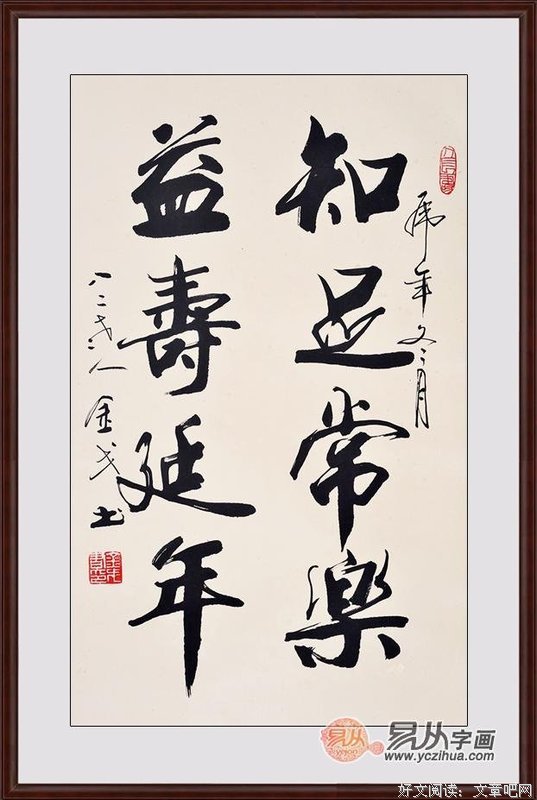 虎年冬月
知足常樂
益壽延年
八二岁人 金戈书
易从
易从字画
www.yczihua.com
好文阅读：文章吧网